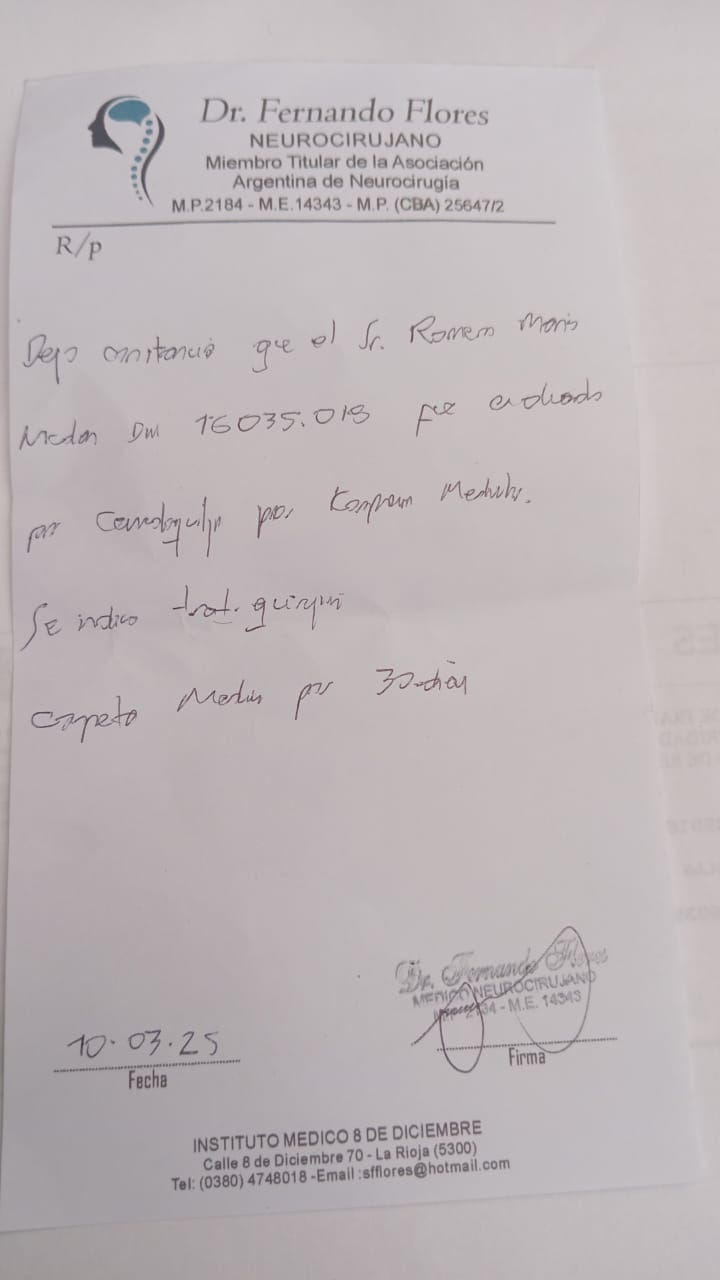 Dr. Fernando Flores
NEUROCIRUJANO
Miembro Titular de la Asociación
Argentina de Neurocirugía
M.P.2184 - M.E.14343 - M.P. (CBA) 25647/2
R/p
Dejo constancia que el Sr. Romero
DNI 16035.018 fue evaluado
por por Medular.
Se indico trat. quirurgi
Carpeta Medica por 30 dias
10.03.25
Fecha
Dr. Fernando Flores
MEDICO NEUROCIRUJANO
M.E. 14343
Firma
INSTITUTO MEDICO 8 DE DICIEMBRE
Calle 8 de Diciembre 70 - La Rioja (5300)
Tel: (0380) 4748018 -Email :sfflores@hotmail.com